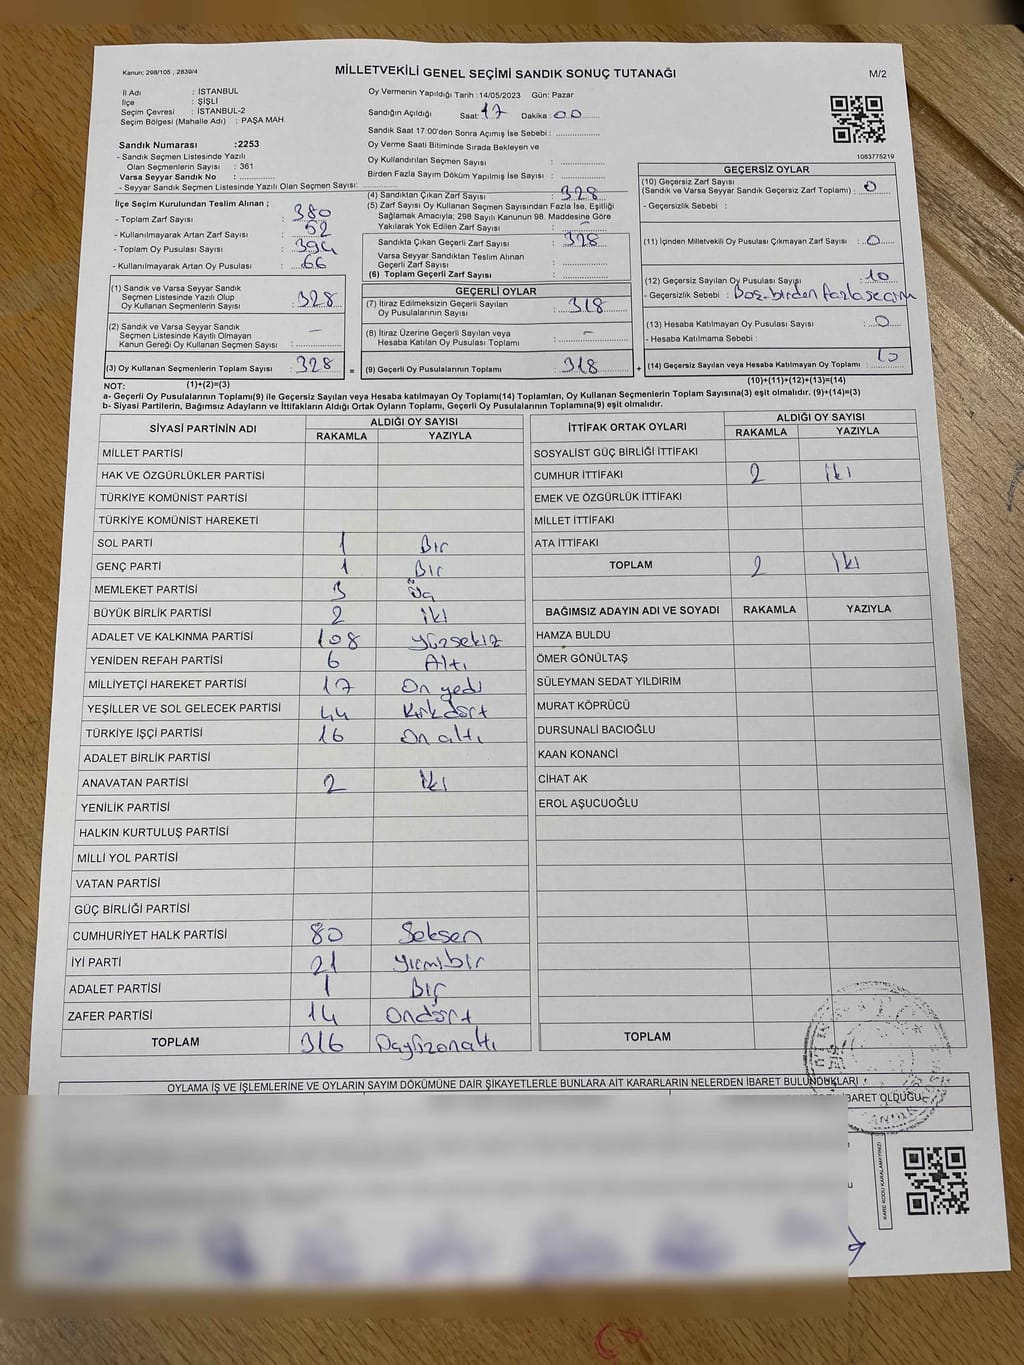 Kanun; 298/105 , 2839/4
MİLLETVEKİLİ GENEL SEÇİMİ SANDIK SONUÇ TUTANAĞI
M/2
İl Adı : İSTANBUL
İlçe : ŞİŞLİ
Seçim Çevresi : İSTANBUL-2
Seçim Bölgesi (Mahalle Adı) : PAŞA MAH.
Sandık Numarası :2253
- Sandık Seçmen Listesinde Yazılı
Olan Seçmenlerin Sayısı : 361
Varsa Seyyar Sandık No : ...............
- Seyyar Sandık Seçmen Listesinde Yazılı Olan Seçmen Sayısı: ...............
Oy Vermenin Yapıldığı Tarih :14/05/2023 Gün: Pazar
Sandığın Açıldığı Saat: 17 Dakika : 00
Sandık Saat 17:00'den Sonra Açımış İse Sebebi : ...............
Oy Verme Saati Bitiminde Sırada Bekleyen ve
Oy Kullandırılan Seçmen Sayısı : ...............
Birden Fazla Sayım Döküm Yapılmış İse Sayısı : ...............
1083775219
İlçe Seçim Kurulundan Teslim Alınan ;
- Toplam Zarf Sayısı : 380
- Kullanılmayarak Artan Zarf Sayısı : 52
- Toplam Oy Pusulası Sayısı : 394
- Kullanılmayarak Artan Oy Pusulası : 66
(1) Sandık ve Varsa Seyyar Sandık
Seçmen Listesinde Yazılı Olup
Oy Kullanan Seçmenlerin Sayısı : 328
(2) Sandık ve Varsa Seyyar Sandık
Seçmen Listesinde Kayıtlı Olmayan
Kanun Gereği Oy Kullanan Seçmen Sayısı : –
(3) Oy Kullanan Seçmenlerin Toplam Sayısı : 328 =
(4) Sandıktan Çıkan Zarf Sayısı : 328
(5) Zarf Sayısı Oy Kullanan Seçmen Sayısından Fazla İse, Eşitliği
Sağlamak Amacıyla; 298 Sayılı Kanunun 98. Maddesine Göre
Yakılarak Yok Edilen Zarf Sayısı : –
Sandıkta Çıkan Geçerli Zarf Sayısı : 328
Varsa Seyyar Sandıktan Teslim Alınan
Geçerli Zarf Sayısı : ...............
(6) Toplam Geçerli Zarf Sayısı : ...............
GEÇERLİ OYLAR
(7) İtiraz Edilmeksizin Geçerli Sayılan
Oy Pusulalarının Sayısı : 318
(8) İtiraz Üzerine Geçerli Sayılan veya
Hesaba Katılan Oy Pusulası Toplamı : –
(9) Geçerli Oy Pusulalarının Toplamı : 318 +
GEÇERSİZ OYLAR
(10) Geçersiz Zarf Sayısı
(Sandık ve Varsa Seyyar Sandık Geçersiz Zarf Toplamı) : 0
- Geçersizlik Sebebi : ...............
(11) İçinden Milletvekili Oy Pusulası Çıkmayan Zarf Sayısı : 0
(12) Geçersiz Sayılan Oy Pusulası Sayısı : 10
- Geçersizlik Sebebi : Boş-birden fazla seçim
(13) Hesaba Katılmayan Oy Pusulası Sayısı : 0
- Hesaba Katılmama Sebebi :
(14) Geçersiz Sayılan veya Hesaba Katılmayan Oy Toplamı : 10
NOT: (1)+(2)=(3)
(10)+(11)+(12)+(13)=(14)
a- Geçerli Oy Pusulalarının Toplamı(9) ile Geçersiz Sayılan veya Hesaba katılmayan Oy Toplamı(14) Toplamları, Oy Kullanan Seçmenlerin Toplam Sayısına(3) eşit olmalıdır. (9)+(14)=(3)
b- Siyasi Partilerin, Bağımsız Adayların ve İttifakların Aldığı Ortak Oyların Toplamı, Geçerli Oy Pusulalarının Toplamına(9) eşit olmalıdır.
SİYASİ PARTİNİN ADI ALDIĞI OY SAYISI
RAKAMLA YAZIYLA
MİLLET PARTİSİ
HAK VE ÖZGÜRLÜKLER PARTİSİ
TÜRKİYE KOMÜNİST PARTİSİ
TÜRKİYE KOMÜNİST HAREKETİ
SOL PARTİ 1 Bir
GENÇ PARTİ 1 Bir
MEMLEKET PARTİSİ 3 Üç
BÜYÜK BİRLİK PARTİSİ 2 iki
ADALET VE KALKINMA PARTİSİ 108 Yüzsekiz
YENİDEN REFAH PARTİSİ 6 Altı
MİLLİYETÇİ HAREKET PARTİSİ 17 On yedi
YEŞİLLER VE SOL GELECEK PARTİSİ 44 Kırkdört
TÜRKİYE İŞÇİ PARTİSİ 16 On altı
ADALET BİRLİK PARTİSİ
ANAVATAN PARTİSİ 2 iki
YENİLİK PARTİSİ
HALKIN KURTULUŞ PARTİSİ
MİLLİ YOL PARTİSİ
VATAN PARTİSİ
GÜÇ BİRLİĞİ PARTİSİ
CUMHURİYET HALK PARTİSİ 80 Seksen
İYİ PARTİ 21 Yirmibir
ADALET PARTİSİ 1 Bir
ZAFER PARTİSİ 14 Ondört
TOPLAM 316
İTTİFAK ORTAK OYLARI ALDIĞI OY SAYISI
RAKAMLA YAZIYLA
SOSYALİST GÜÇ BİRLİĞİ İTTİFAKI
CUMHUR İTTİFAKI 2 iki
EMEK VE ÖZGÜRLÜK İTTİFAKI
MİLLET İTTİFAKI
ATA İTTİFAKI
TOPLAM 2 iki
BAĞIMSIZ ADAYIN ADI VE SOYADI RAKAMLA YAZIYLA
HAMZA BULDU
ÖMER GÖNÜLTAŞ
SÜLEYMAN SEDAT YILDIRIM
MURAT KÖPRÜCÜ
DURSUNALİ BACIOĞLU
KAAN KONANCİ
CİHAT AK
EROL AŞUCUOĞLU
TOPLAM
OYLAMA İŞ VE İŞLEMLERİNE VE OYLARIN SAYIM DÖKÜMÜNE DAİR ŞİKAYETLERLE BUNLARA AİT KARARLARIN NELERDEN İBARET BULUNDUKLARI
İBARET OLDUĞU
KARE KODU KARALAMAYINIZ!